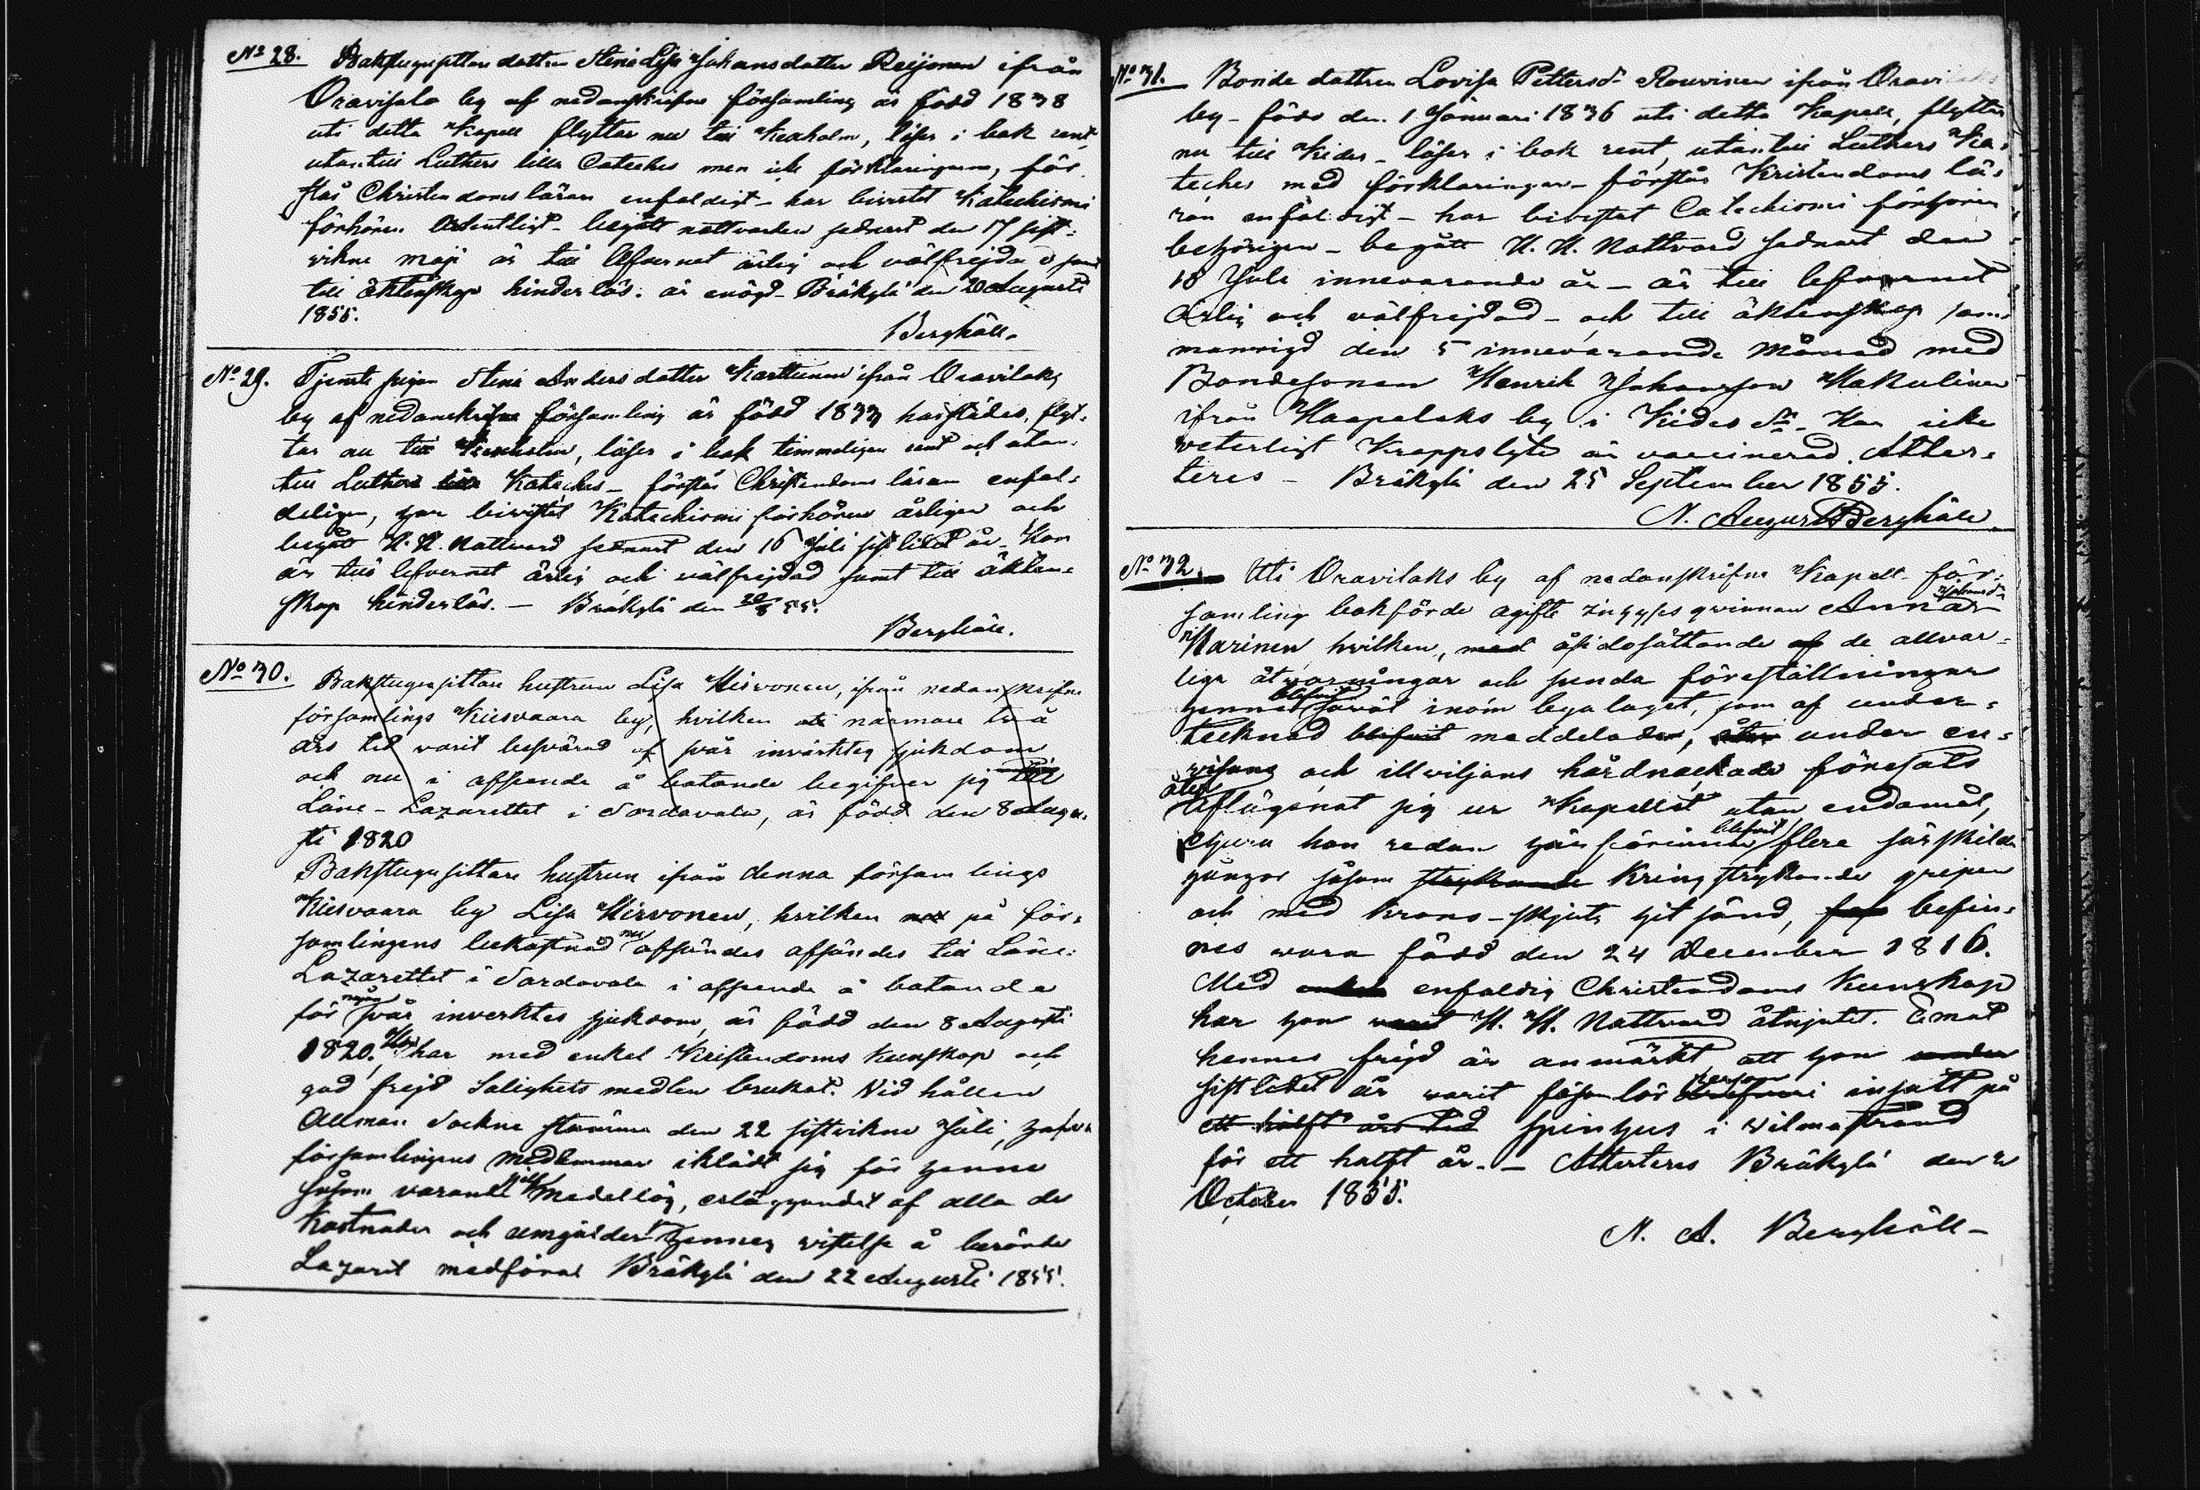 No 28. Bakstugusittare dottren Stina Lisa Johansdotter Reijonen ifrån
Oravisalo by af nedanskrifne församling är född 1838
uti detta Kapell flyttar nu till Kexholm, läser i bok rent,
utantill Luthers lilla Cateches men icke förklaringarne, för-
står Christendomsläran enfaldigt - har bivistat Katechismi
förhören ordentligt - begått nattvarden sednast den 17 sist-
vikne maji är till lefvernet ärlig och välfrejdad samt
till äktenskap hinderlös: är enögd - Bräkylä den 20 Augusti
1855.
Berghäll.
No 29. Tjenste pigan Stina Andersdotter Karttunen ifrån Oravilaks
by af nedanskrifne församling är född 1833 härstädes, flyt-
tar nu till Kexholm, läser i bok temmeligen rent och utan-
till Luthers lilla Kateches - förstår Christendoms läran enfal-
deligen, har bivistat Katechismi förhören årligen och
begått H. H. Nattvard sednast den 16 Juli sistlidet år - Hon
är till lefvernet ärlig och välfrejdad samt till äkten-
skap hinderlös. - Bräkylä den 20/8 55.
Berghäll.
No 30. Bakstugusittare hustrun Lisa Hirvonen, ifrån nedanskrifne
församlings Kiesvaara by, hvilken uti närmare två
års tid varit besvärad af svår invärtes sjukdom
och nu i afseende å botande begifver sig till
Läne-Lazarettet i Sordavala, är född den 8 Augu-
sti 1820
Bakstugusittare hustrun ifrån denna församlings
Kiesvaara by Lisa Hirvonen, hvilken nu på för-
samlingens bekostnad nu afsändes afsändes till Läne-
Lazarettet i Sordavala i afseende å botande
för någon svår invertes sjukdom, är född den 8 Augusti
1820. Hon har med enkel Kristendoms kunskap och
god frejd Salighets medlen brukat. Vid hållen
Allmän Sockne stämma den 22 sistvikne Juli, hafva
församlingens medlemmar iklädt sig för henne
såsom varande medellös, erläggandet af alla de
Kostnader och umgälder hennes vistelse å berörde
Lazaret medföra. Bräkylä den 22 Augusti 1855.
No 31. Bonde dottren Lovisa Pettersd:r Rouvinen ifrån Oravi
by - född den 1 Januari 1836 uti detta Kapell, flyttar
nu till Kides - läser i bok rent, utantill Luthers Ka-
teches med förklaringar - förstår Kristendoms lä-
ran enfaldigt - har bivistat Catechismi förhören
behörigen - begått H. H. Nattvard sednast den
18 Juli innevarande år - är till lefvernet
ärlig och välfrejdad - och till äktenskap sam-
manvigd den 5 innevarande Månad med
Bondesonen Henrik Johansson Hakulinen
ifrån Haapalaks by i Kides Sn. Har icke
veterligt Kroppslyte är vaccinerad. Atter-
teres - Bräkylä den 25 September 1855.
N. August Berghäll
No 32. Uti Oravilaks by af nedanskrifne Kapell-för-
samling bokförde ogifte inhyses qvinnan Anna Johansd:r
Karinen, hvilken, med åsidosättande af de allvar-
liga åtvarningar och sunda föreställningar
henne blifvit såväl inom byalaget, som af under-
tecknad blifvit meddelade, åter under en-
visans och illviljans hårdnackade föresats
åter aflägsnat sig ur Kapellet utan endamål,
ehuru hon redan härförinnan blifvit flere särskilda
gångor såsom strykande Kringstrykande gripen
och med krono-skjuts hit sänd, befin-
nes vara född den 24 December 1816.
Med enkel enfaldig Christendoms Kunskap
har hon varit H. H. Nattvard åtnjutit. Emot
hennes frejd är anmärkt att hon under
sistlidet år varit försvarslös person insatt på
ett hälft års tid spinhus i Vilmastrand
för ett halft år. - Attesteras Bräkylä den 2
October 1855.
N. A. Berghäll -